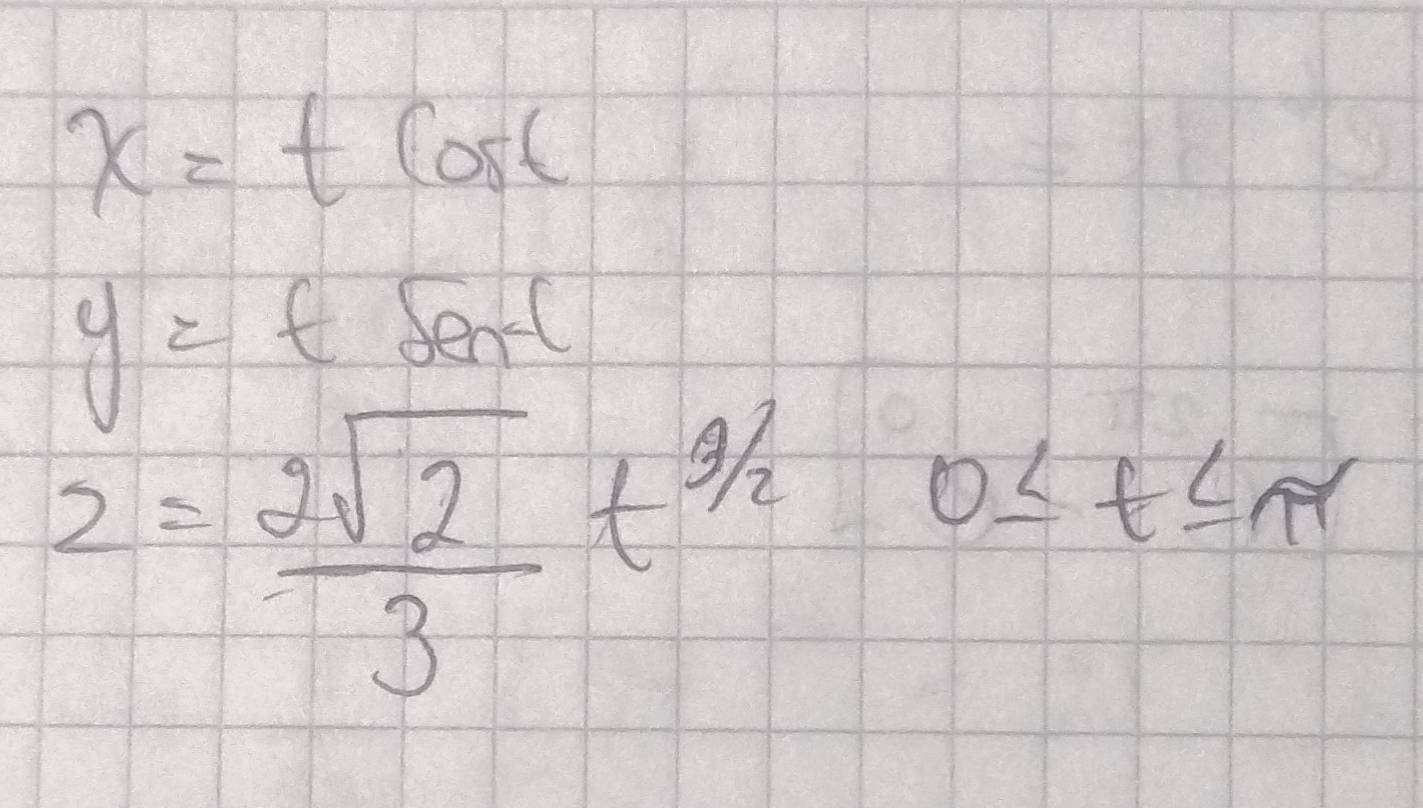 x = t Cost
y = t Sent
z = 2√2/3 t^3/2 0 ≤ t ≤ π